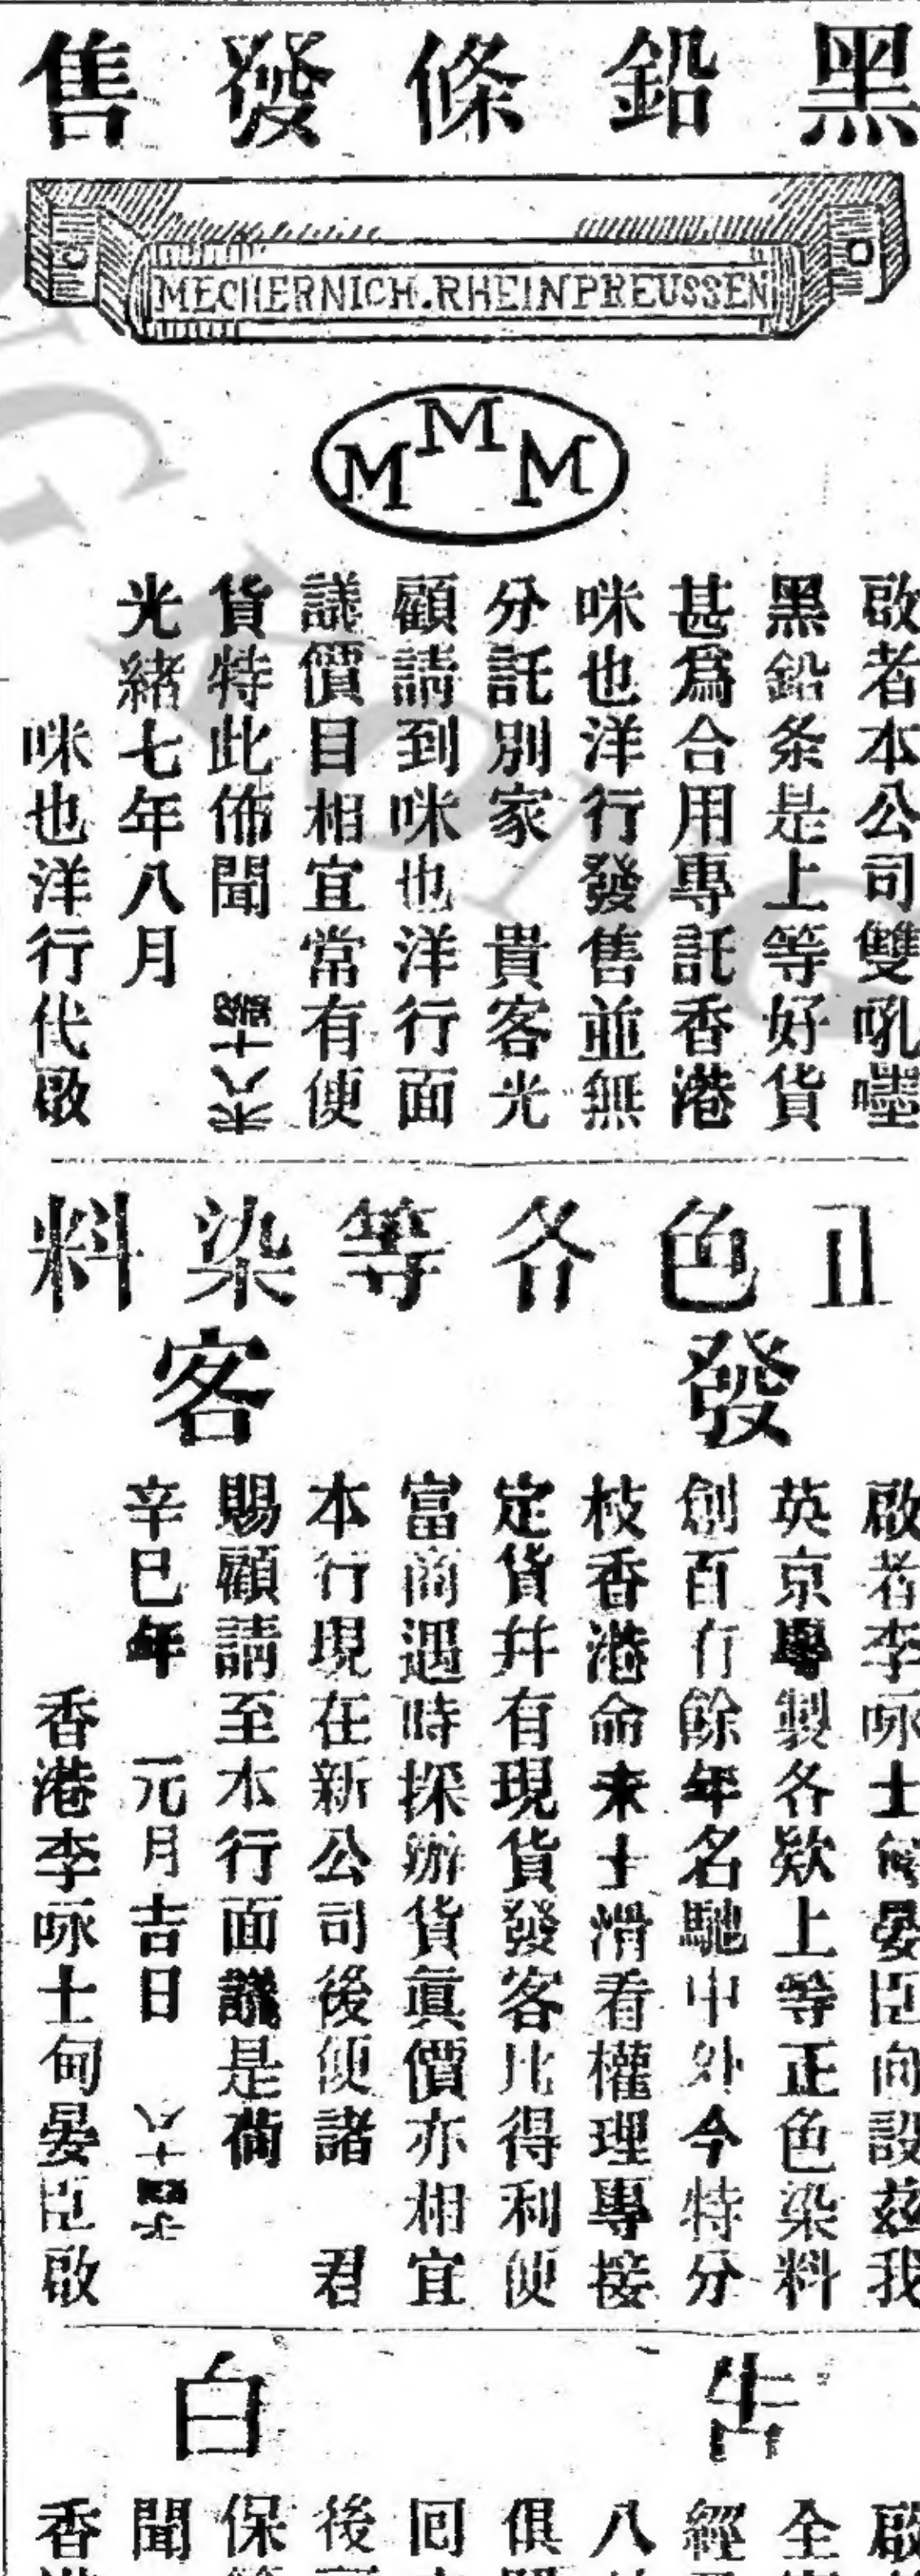 黑鉛條發售
MECHERNICH.RHEINPREUSSEN
M M M
啟者本公司雙吼嚜
黑鉛条是上等好貨
甚爲合用專託香港
咪也洋行發售並無
分託別家 貴客光
顧請到咪也洋行面
議價目相宜常有便
貨特此佈聞
光緒七年八月
咪也洋行代啟
正色各等染料
發客
啟者李㖟士甸晏臣向設茲我
英京專製各欵上等正色染料
創百有餘年名馳中外今特分
枝香港命來士滑看權理專接
定貨幷有現貨發客比得利便
富商遇時採辦貨眞價亦相宜
本行現在新公司後便諸 君
賜顧請至本行面議是荷
辛巳年 元月吉日
香港李㖟士甸晏臣啟
告白
啟
全
經
八
俱
回
後
保
聞
香